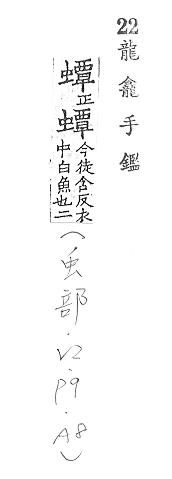 22 龍龕手鑑
蟫正蟫今徒含反衣
中白魚也二
(虫部.V2.P9.A8)